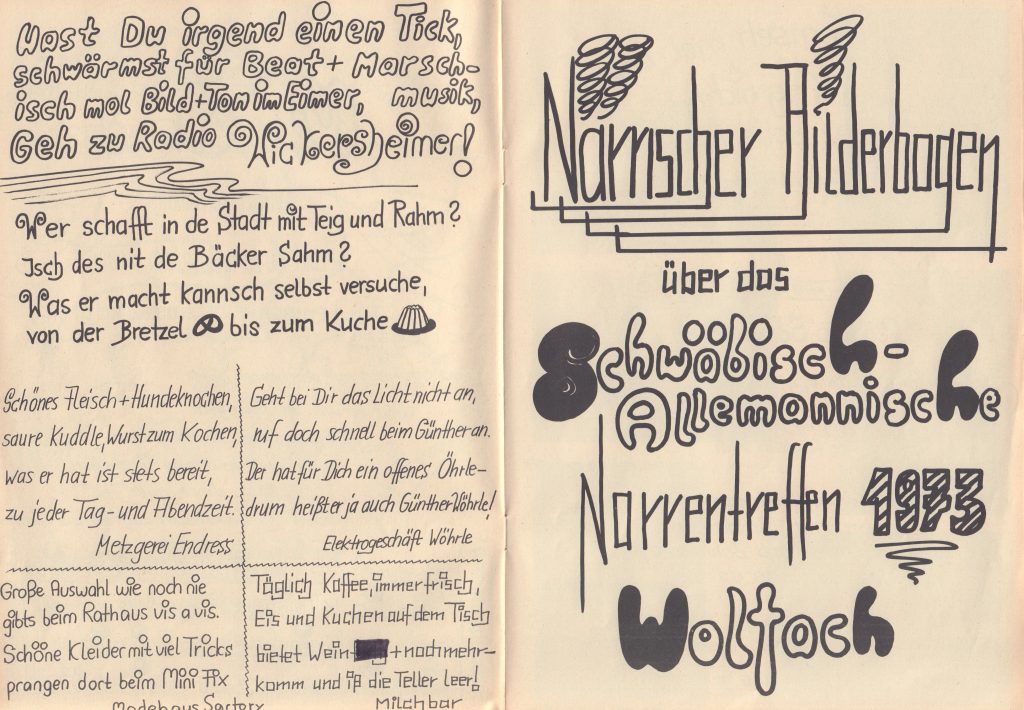 Hast Du irgend einen Tick,
schwärmst für Beat + Marsch-
isch mol Bild+Ton im Eimer, musik,
Geh zu Radio Wickersheimer!
Wer schafft in de Stadt mit Teig und Rahm?
Isch des nit de Bäcker Sahm?
Was er macht kannsch selbst versuche,
von der Bretzel bis zum Kuche
Schönes Fleisch+Hundeknochen,
saure Kuddle, Wurst zum Kochen,
was er hat ist stets bereit,
zu jeder Tag- und Abendzeit.
Metzgerei Endress
Geht bei Dir das Licht nicht an,
ruf doch schnell beim Günther an.
Der hat für Dich ein offenes Öhrle-
drum heißt er ja auch Günther Wöhrle!
Elektrogeschäft Wöhrle
Große Auswahl wie noch nie
gibts beim Rathaus vis a vis.
Schöne Kleider mit viel Tricks
prangen dort beim Mini Fix
Modehaus Sartory
Täglich Kaffee, immer frisch,
Eis und Kuchen auf dem Tisch
bietet Wein + noch mehr-
komm und iß die Teller leer!
Milchbar
Närrischer Bilderbogen
über das
Schwäbisch-
Allemannische
Narrentreffen 1973
Wolfach